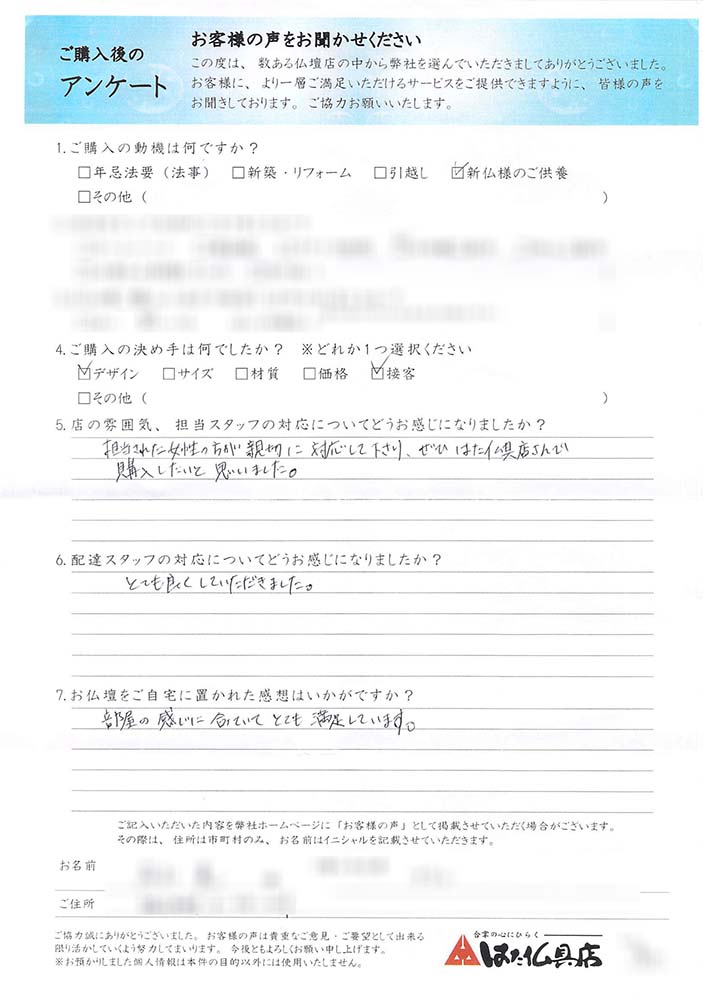 ご購入後の
アンケート
お客様の声をお聞かせください
この度は、数ある仏壇店の中から弊社を選んでいただきましてありがとうございました。
お客様に、より一層ご満足いただけるサービスをご提供できますように、皆様の声を
お聞きしております。ご協力お願いいたします。
1.ご購入の動機は何ですか？
□年忌法要（法事） □新築・リフォーム □引越し ☑新仏様のご供養
□その他（ ）
4.ご購入の決め手は何でしたか？ ※どれか1つ選択ください
☑デザイン □サイズ □材質 □価格 ☑接客
□その他（ ）
5.店の雰囲気、担当スタッフの対応についてどうお感じになりましたか？
担当された女性の方が親切に対応して下さり、ぜひはた仏具店さんで
購入したいと思いました。
6.配達スタッフの対応についてどうお感じになりましたか？
とても良くしていただきました。
7.お仏壇をご自宅に置かれた感想はいかがですか？
部屋の感じに合っていてとても満足しています。
ご記入いただいた内容を弊社ホームページに「お客様の声」として掲載させていただく場合がございます。
その際は、住所は市町村のみ、お名前はイニシャルを記載させていただきます。
お名前
ご住所
ご協力誠にありがとうございました。お客様の声は貴重なご意見・ご要望として出来る
限り活かしていくよう努力してまいります。今後ともよろしくお願い申し上げます。
※お預かりしました個人情報は本件の目的以外には使用いたしません。
合掌の心にひらく
はた仏具店